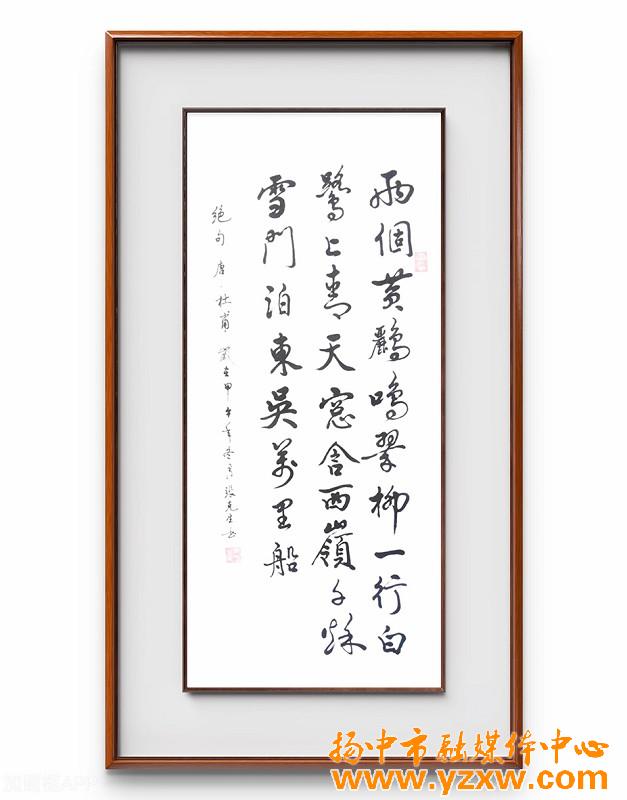 兩個黃鸝鳴翠柳一行白
鷺上青天窓含西嶺千秋
雪門泊東吳萬里船
絕句 唐·杜甫 歲在甲午年冬月張克生书
扬中市融媒体中心
www.yzxw.com